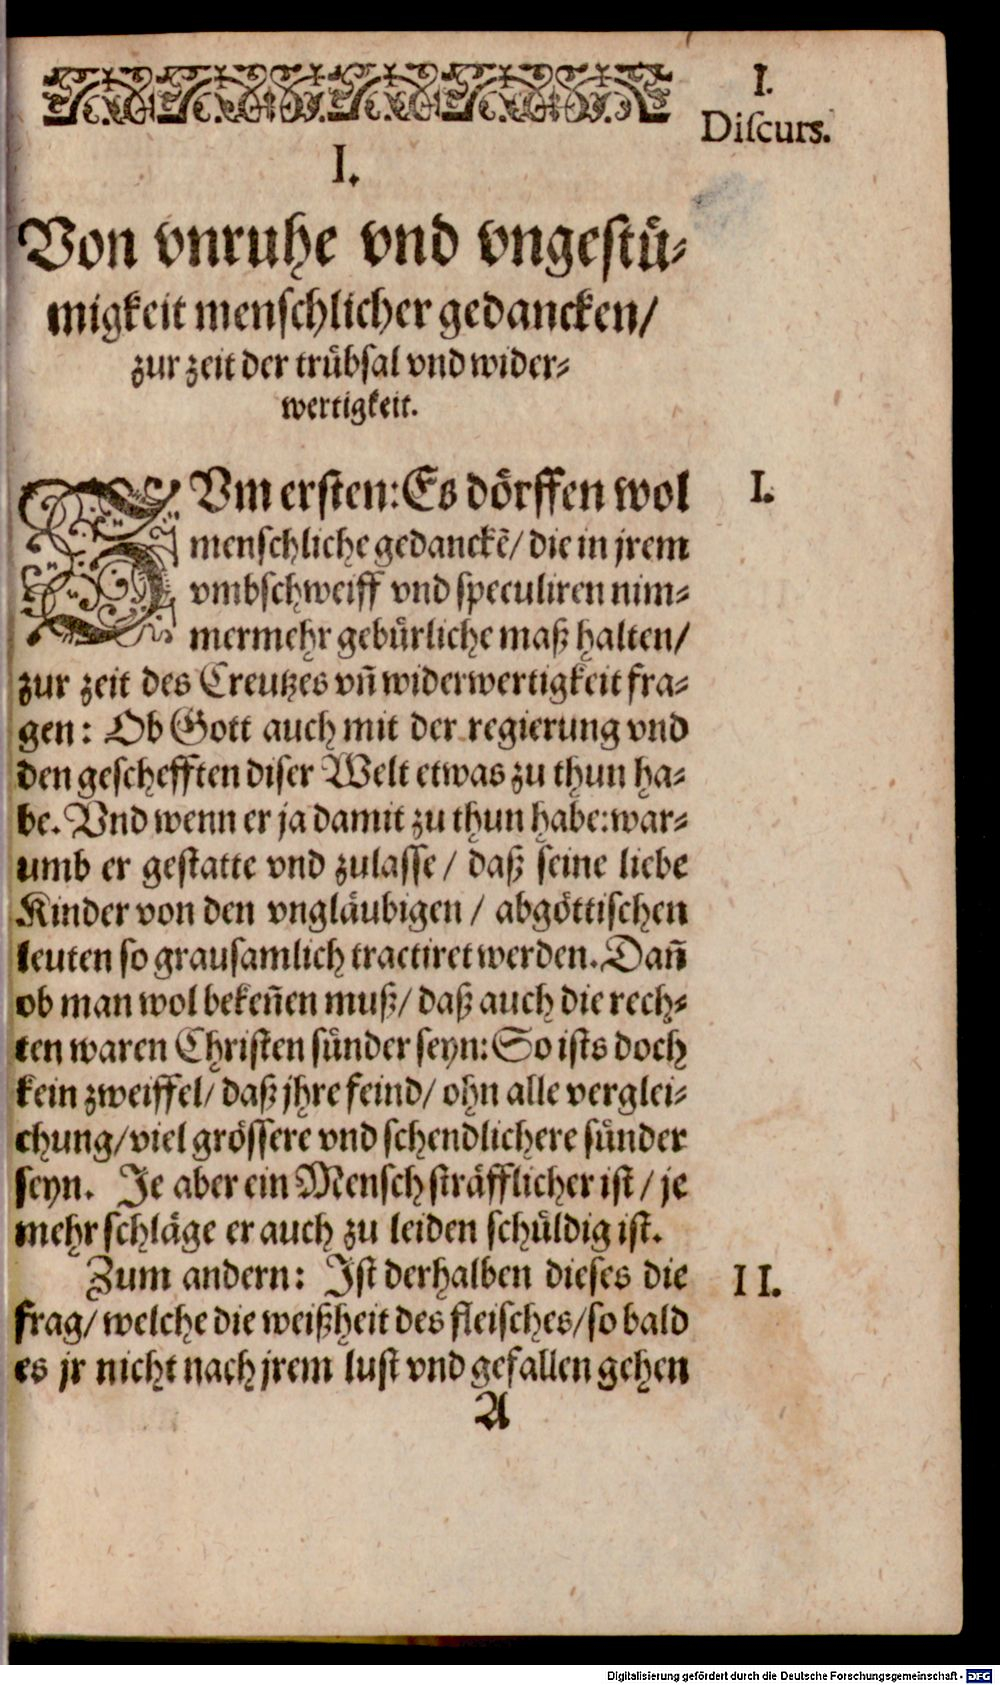 I.
Discurs.
I.
Von vnruhe vnd vngestuͤ-
migkeit menschlicher gedancken/
zur zeit der truͤbsal vnd wider-
wertigkeit.
ZVm ersten: Es doͤrffen wol
I.
menschliche gedanckẽ/ die in jrem
vmbschweiff vnd speculiren nim-
mermehr gebuͤrliche maß halten/
zur zeit des Creutzes vñ widerwertigkeit fra-
gen: Ob Gott auch mit der regierung vnd
den geschefften diser Welt etwas zu thun ha-
be. Vnd wenn er ja damit zu thun habe: war-
umb er gestatte vnd zulasse/ daß seine liebe
Kinder von den vnglaͤubigen/ abgoͤttischen
leuten so grausamlich tractiret werden. Dañ
ob man wol bekeñen muß/ daß auch die rech-
ten waren Christen suͤnder seyn: So ists doch
kein zweiffel/ daß jhre feind/ ohn alle verglei-
chung/ viel groͤssere vnd schendlichere suͤnder
seyn. Je aber ein Mensch straͤfflicher ist/ je
mehr schlaͤge er auch zu leiden schuͤldig ist.
Zum andern: Ist derhalben dieses die
II.
frag/ welche die weißheit des fleisches/ so bald
es jr nicht nach jrem lust vnd gefallen gehen
A
Digitalisierung gefördert durch die Deutsche Forschungsgemeinschaft - DFG